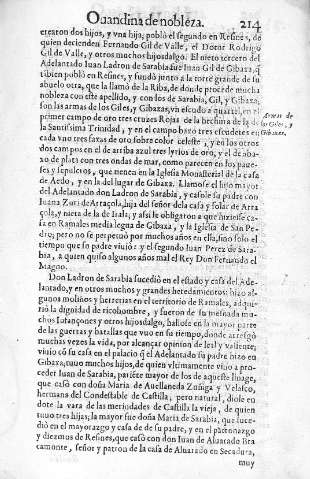 Quandina de nobleza. 214
crearon dos hijos, y vna hija, poblò el segundo en Resines, de
quien decienden Fernando Gil de Valle, el Dotor Rodrigo
Gil de Valle, y otros muchos hijosdalgo. El nieto tercero del
Adelantado Iuan Ladron de Sarabia fue Iuan Gil de Gibaxa, q̃
tãbien poblò en Resines, y fundò junto a la torre grande de su
abuelo otra, que la llamò de la Riba, de donde procede mucha
nobleza con este apellido, y con los de Sarabia, Gil, y Gibaxa,
son las armas de los Giles, y Gibaxas, vn escudo a quartel, en el
primer campo de oro tres cruzes Rojas de la hechura de la de
la Santissima Trinidad, y en el campo baxo tres escudetes en
Armas de
los Giles, y
Gibaxas.
cada vno tres faxas de oro sobre color celeste, y en los otros
dos campos en el de arriba azul tres lyrios de oro, y el de aba-
xo de plata con tres ondas de mar, como parecen en los paue-
ses y sepulcros, que tienen en la Iglesia Monasterial de la casa
de Aedo, y en la del lugar de Gibaxa. Llamose el hijo mayor
del Adelantado don Ladron de Sarabia, y casòle su padre con
Iuana Zuri de Artaçola, hija del señor de la casa y solar de Arta
çola, y nieta de la de Irala; y assi le obligaron a que hiziesse ca-
sa en Ramales media legua de Gibaxa, y la Iglesia de San Pe-
dro; pero no se perpetuò por muchos años en ella, sino solo el
tiempo que su padre viuiò: y el segundo Iuan Perez de Sara-
bia, a quien quiso algunos años mal el Rey Don Fernando el
Magno.
Don Ladron de Sarabia sucediò en el estado y casa del Ade-
lantado, y en otros muchos y grandes heredamientos: hizo al-
gunos molinos y herrerias en el territorio de Ramales, adqui-
riò la dignidad de ricohombre, y fueron de su mesnada mu-
chos Infançones y otros hijosdalgo, hallose en la mayor parte
de las guerras y batallas que vuo en su tiempo, donde arresgò
muchas vezes la vida, por alcançar opinion de leal y valiente,
viuiò cõ su casa en el palacio q̃ el Adelantado su padre hizo en
Gibaxa, tuuo muchos hijos, de quien vltimamente vino a pro-
ceder Iuan de Sarabia, pariẽte mayor de los de aqueste linage,
que casò con doña Maria de Auellaneda Zuñiga y Velasco,
hermana del Condestable de Castilla; pero natural, diole en
dote la vara de las merindades de Castilla la vieja, de quien
tuuo tres hijas; la mayor fue doña Maria de Sarabia, que suce-
diò en el mayorazgo y casa de su padre, y en el patronazgo
y diezmos de Resines, que casò con don Iuan de Aluarado Bra
camonte, señor y patron de la casa de Aluarado en Secadura,
muy